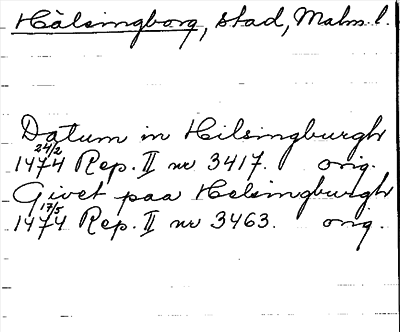 Hälsingborg, stad, Malm. l.
Datum in Hilsingburgh
24/2
1474 Rep. II nr 3417. orig.
Givet paa Helsingburgh
17/5
1474 Rep. II nr 3463. orig.